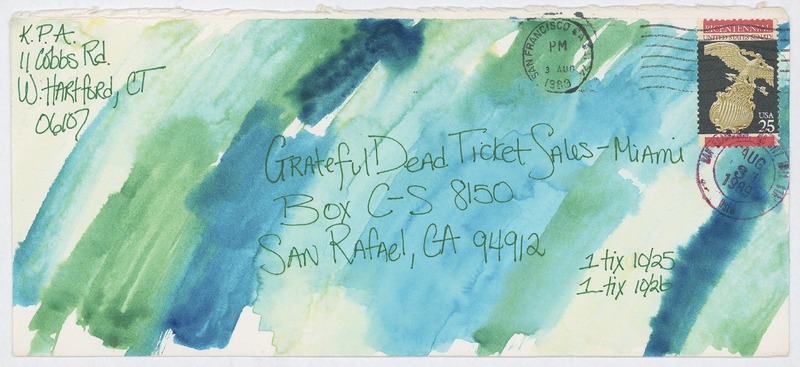 K.P.A.
11 Cobbs Rd.
W. Hartford, CT
06107
SAN FRANCISCO
PM
3 AUG
1989
BICENTENNIAL
UNITED STATES SENATE
USA
25
AUG
3
1989
Grateful Dead Ticket Sales - Miami
Box C-S 8150
San Rafael, CA 94912
1 tix 10/25
1 tix 10/26